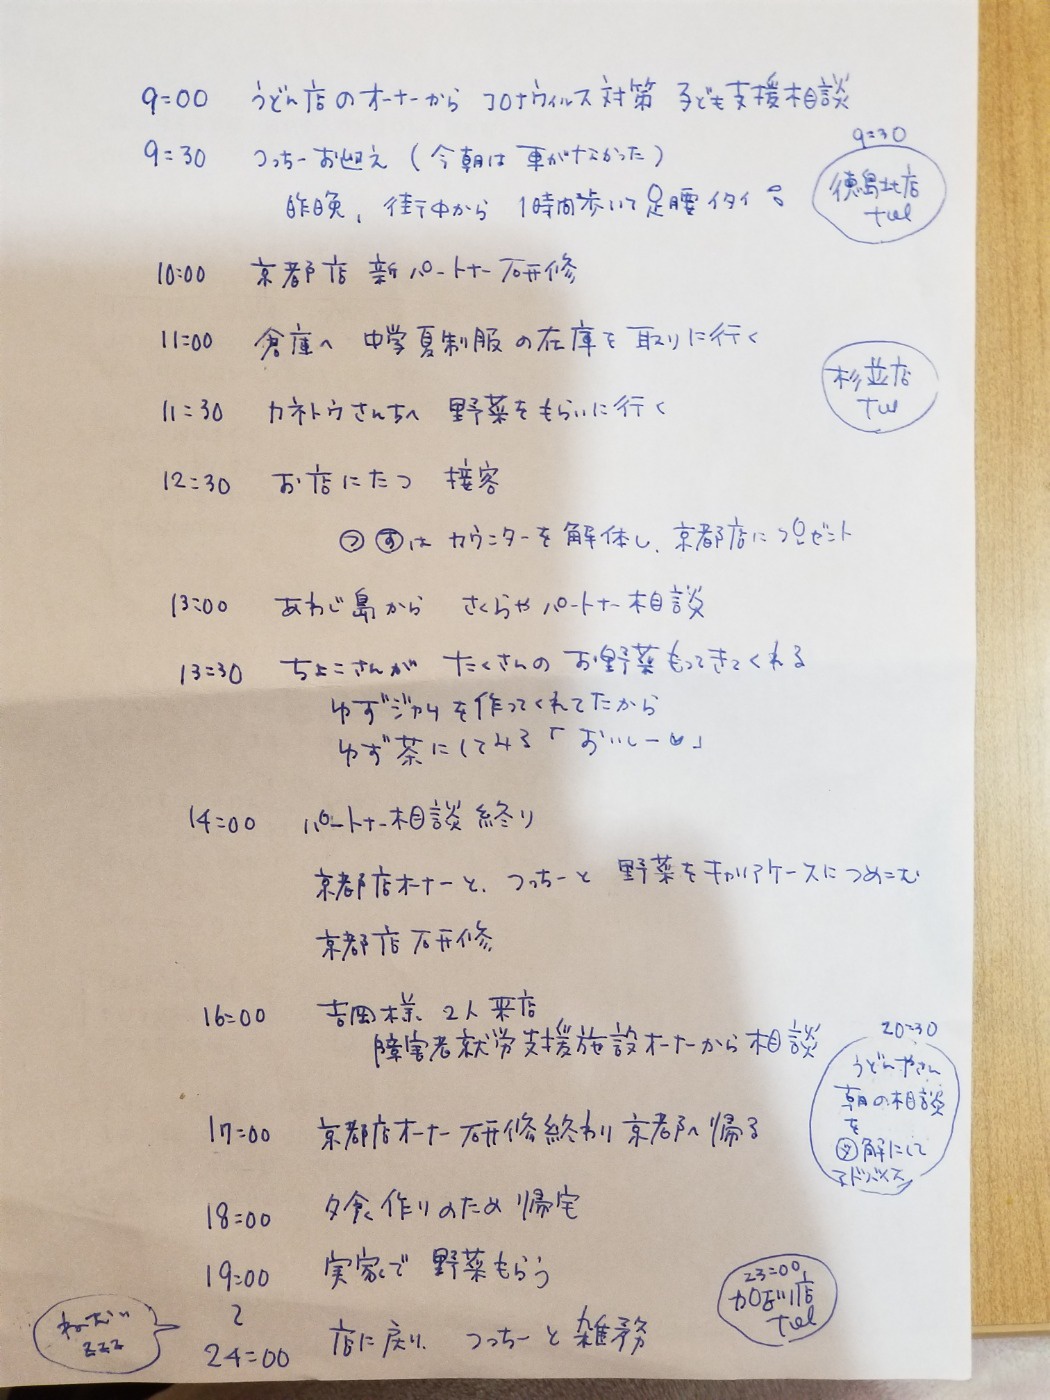 9:00 うどん店のオーナーから コロナウィルス対策 子ども支援相談
9:30 つっちーお迎え（今朝は車がなかった）
昨晩、街中から 1時間歩いて足腰イタイ
9:30
徳島北店
tel
10:00 京都店 新パートナー研修
11:00 倉庫へ 中学夏制服の在庫を取りに行く
杉並店
tel
11:30 カネトウさんちへ 野菜をもらいに行く
12:30 お店にたつ 接客
㋡ ㋜は カウンターを解体し、京都店にプレゼント
13:00 あわじ島から さくらやパートナー相談
13:30 ちょこさんが たくさんの お野菜もってきてくれる
ゆずジャムを作ってくれてたから
ゆず茶にしてみる「おいしー」
14:00 パートナー相談 終り
京都店オーナーと、つっちーと 野菜をキャリアケースにつめこむ
京都店研修
16:00 吉岡様 2人来店
障害者就労支援施設オーナーから相談
20:30
うどんやさん
朝の相談
を
図解にして
アドバイス
17:00 京都店オーナー研修終わり 京都へ帰る
18:00 夕食作りのため帰宅
19:00 実家で 野菜もらう
〜
24:00 店に戻り、つっちーと雑務
23:00
加古川店
tel
ねむい